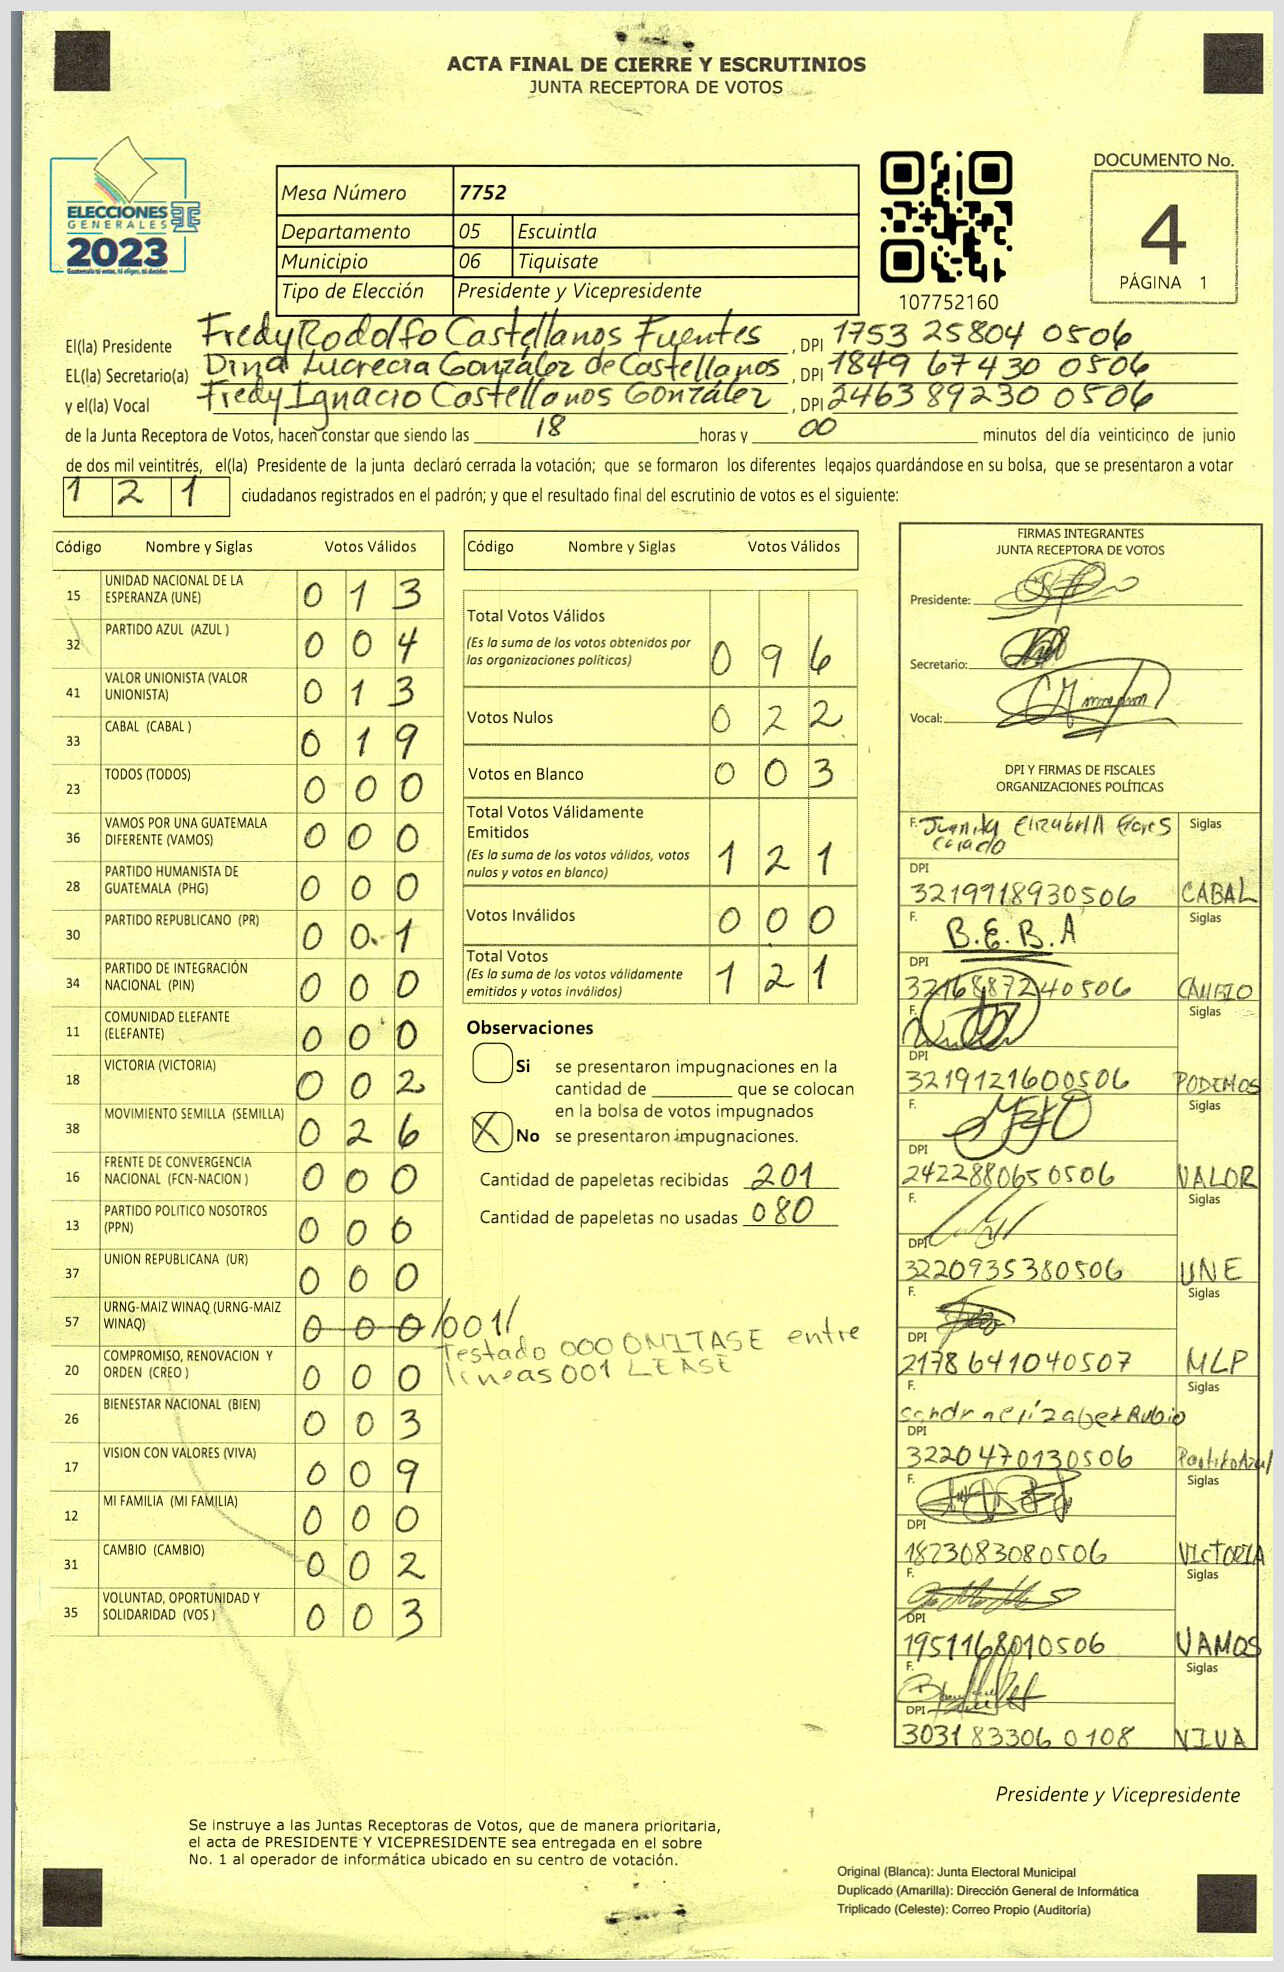 ACTA FINAL DE CIERRE Y ESCRUTINIOS
JUNTA RECEPTORA DE VOTOS
ELECCIONES
GENERALES
2023
Guatemala tú votas, tú eliges, tú decides
Mesa Número 7752
Departamento 05 Escuintla
Municipio 06 Tiquisate
Tipo de Elección Presidente y Vicepresidente
107752160
DOCUMENTO No.
4
PÁGINA 1
El(la) Presidente Fredy Rodolfo Castellanos Fuentes, DPI 1753 25804 0506
EL(la) Secretario(a) Dina Lucrecia González de Castellanos, DPI 1849 67430 0506
y el(la) Vocal Fredy Ignacio Castellanos González, DPI 2463 89230 0506
de la Junta Receptora de Votos, hacen constar que siendo las 18 horas y 00 minutos del día veinticinco de junio
de dos mil veintitrés, el(la) Presidente de la junta declaró cerrada la votación; que se formaron los diferentes legajos quardándose en su bolsa, que se presentaron a votar
1 2 1 ciudadanos registrados en el padrón; y que el resultado final del escrutinio de votos es el siguiente:
Código Nombre y Siglas Votos Válidos
15 UNIDAD NACIONAL DE LA ESPERANZA (UNE) 0 1 3
32 PARTIDO AZUL (AZUL ) 0 0 4
41 VALOR UNIONISTA (VALOR UNIONISTA) 0 1 3
33 CABAL (CABAL ) 0 1 9
23 TODOS (TODOS) 0 0 0
36 VAMOS POR UNA GUATEMALA DIFERENTE (VAMOS) 0 0 0
28 PARTIDO HUMANISTA DE GUATEMALA (PHG) 0 0 0
30 PARTIDO REPUBLICANO (PR) 0 0 1
34 PARTIDO DE INTEGRACIÓN NACIONAL (PIN) 0 0 0
11 COMUNIDAD ELEFANTE (ELEFANTE) 0 0 0
18 VICTORIA (VICTORIA) 0 0 2
38 MOVIMIENTO SEMILLA (SEMILLA) 0 2 6
16 FRENTE DE CONVERGENCIA NACIONAL (FCN-NACION ) 0 0 0
13 PARTIDO POLITICO NOSOTROS (PPN) 0 0 0
37 UNION REPUBLICANA (UR) 0 0 0
57 URNG-MAIZ WINAQ (URNG-MAIZ WINAQ) 0 0 0 /001/
Testado 000 OMITASE entre
lineas 001 LEASE
20 COMPROMISO, RENOVACION Y ORDEN (CREO ) 0 0 0
26 BIENESTAR NACIONAL (BIEN) 0 0 3
17 VISION CON VALORES (VIVA) 0 0 9
12 MI FAMILIA (MI FAMILIA) 0 0 0
31 CAMBIO (CAMBIO) 0 0 2
35 VOLUNTAD, OPORTUNIDAD Y SOLIDARIDAD (VOS ) 0 0 3
Código Nombre y Siglas Votos Válidos
Total Votos Válidos
(Es la suma de los votos obtenidos por
las organizaciones políticas) 0 9 6
Votos Nulos 0 2 2
Votos en Blanco 0 0 3
Total Votos Válidamente
Emitidos
(Es la suma de los votos válidos, votos
nulos y votos en blanco) 1 2 1
Votos Inválidos 0 0 0
Total Votos
(Es la suma de los votos válidamente
emitidos y votos inválidos) 1 2 1
Observaciones
Si se presentaron impugnaciones en la
cantidad de ________ que se colocan
en la bolsa de votos impugnados
X No se presentaron impugnaciones.
Cantidad de papeletas recibidas 201
Cantidad de papeletas no usadas 080
FIRMAS INTEGRANTES
JUNTA RECEPTORA DE VOTOS
Presidente:
Secretario:
Vocal:
DPI Y FIRMAS DE FISCALES
ORGANIZACIONES POLÍTICAS
F. Siglas
DPI
3219918930506 CABAL
F. B.E.B.A Siglas
DPI
3216887240506
F. Siglas
DPI
3219121600506 PODEMOS
F. Siglas
DPI
2422880650506 VALOR
F. Siglas
DPI
3220935380506 UNE
F. Siglas
DPI
2178641040507 MLP
F. Siglas
sandra elizabet Rubio
DPI
3220470130506 Partido Azul
F. Siglas
DPI
1823083080506 VICTORIA
F. Siglas
DPI
1951168010506 VAMOS
F. Siglas
DPI
3031833060108 VIVA
Presidente y Vicepresidente
Se instruye a las Juntas Receptoras de Votos, que de manera prioritaria,
el acta de PRESIDENTE Y VICEPRESIDENTE sea entregada en el sobre
No. 1 al operador de informática ubicado en su centro de votación.
Original (Blanca): Junta Electoral Municipal
Duplicado (Amarilla): Dirección General de Informática
Triplicado (Celeste): Correo Propio (Auditoría)